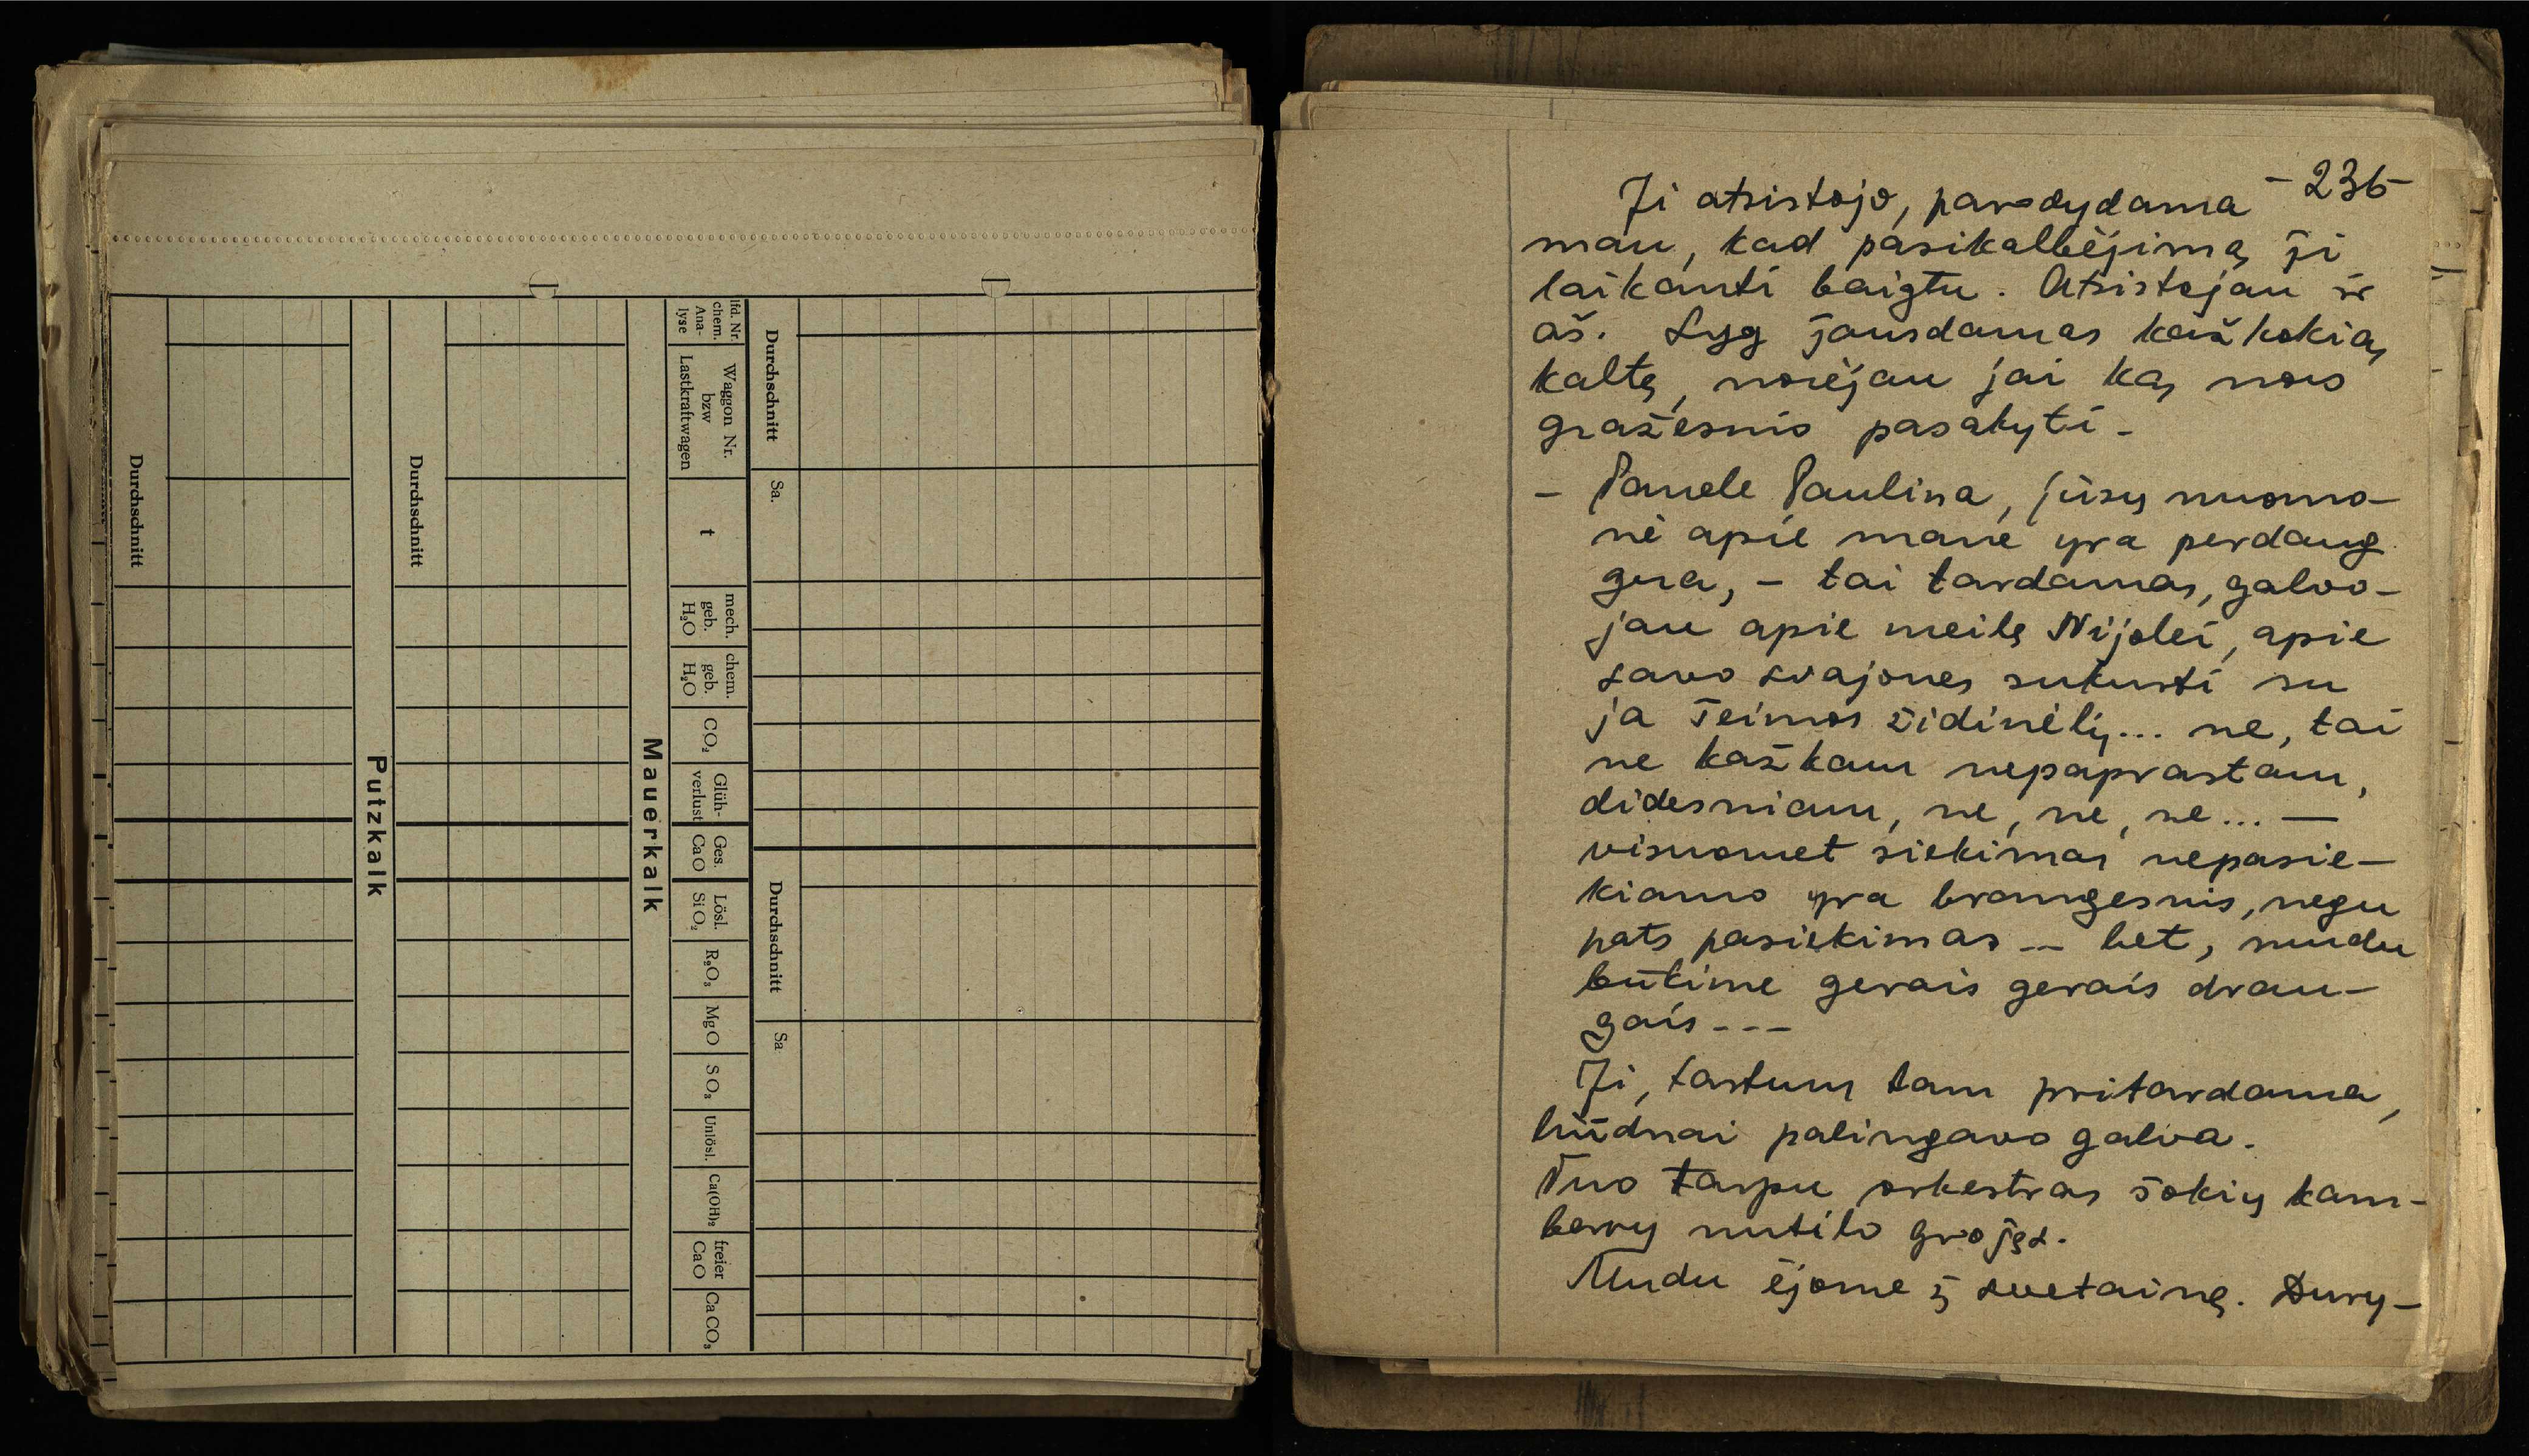 Durchschnitt
Sa.
Durchschnitt
Sa
lfd. Nr. chem. Ana-lyse
Waggon Nr. bzw Lastkraftwagen
t
mech. geb. H₂O
chem. geb. H₂O
CO₂
Glüh-verlust
Ges. CaO
Lösl. SiO₂
R₂O₃
MgO
SO₃
Unlösl.
Ca(OH)₂
freier CaO
CaCO₃
Mauerkalk
Durchschnitt
Putzkalk
Durchschnitt
- 236 -
Ji atsistojo, parodydama
man, kad pasikalbėjimą ji
laikanti baigtu. Atsistojau ir
aš. Lyg jausdamas kažkokią
kaltę, norėjau jai ką nors
gražesnio pasakyti -
- Panele Paulina, jūsų nuomo-
nė apie mane yra perdaug
gera, - tai tardamas, galvo-
jau apie meilę Nijolei, apie
savo svajones sukurti su
ja šeimos židinėlį... ne, tai
ne kažkam nepaprastam,
didesniam, ne, ne, ne... —
visuomet siekimas nepasie-
kiamo yra brangesnis, negu
pats pasiekimas -- bet, mudu
būkime gerais gerais drau-
gais - - -
Ji, tartum tam pritardama,
liūdnai palingavo galva.
Tuo tarpu orkestras šokių kam-
bary nutilo grojęs.
Mudu ėjome į svetainę. Dury-